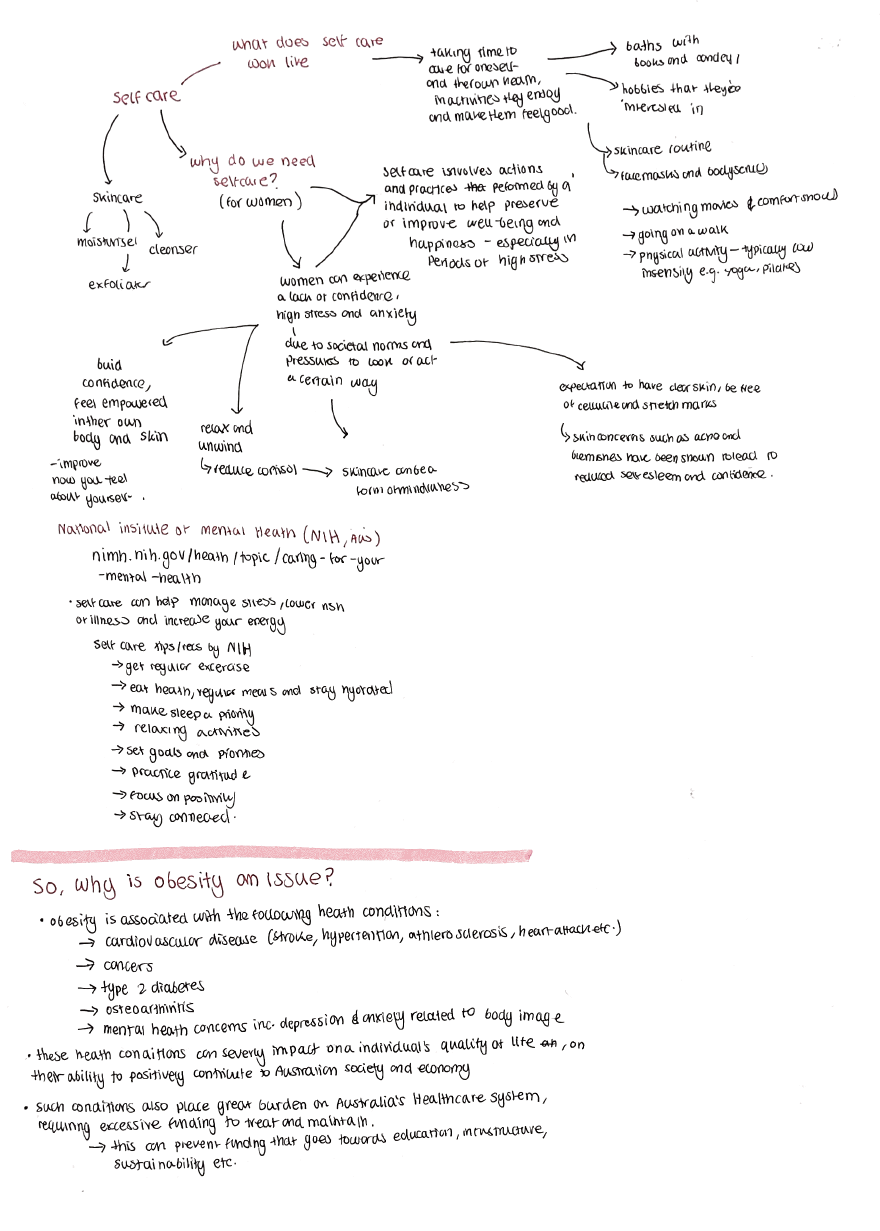 what does self care
won live
self care
taking time to
care for oneself
and therown health,
in activities they enjoy
and make them feelgood.
baths with
books and candey/
hobbies that they're
interested in
skincare routine
facemasks and bodyscrubs
→ watching movies & comfort shows
→ going on a walk
→ physical activity - typically low
insensity e.g. yoga, pilates
why do we need
selfcare?
(for women)
selfcare isinvolves actions
and practices that peformed by a
individual to help preserve
or improve well-being and
happiness - especially in
periods of high stress
skincare
moisturiser
cleanser
exfoliator
women can experience
a lack of confidence,
high stress and anxiety
due to societal norms and
pressures to look or act
a certain way
buid
confidence,
feel empowered
inther own
body and skin
-improve
how you feel
about yourself.
relax and
unwind
reduce cortisol → skincare canbe a
form ofmindfulness
expectation to have clear skin, be free
of cellulite and stretch marks
skin concerns such as acne and
blemishes have been shown to lead to
reduced self esteem and confidence.
National insitute of mental Heath (NIH,
nimh.nih.gov/heath/topic/caring-for-your
-mental-health
• self care can help manage stress, lower risk
of illness and increase your energy
self care tips/recs by NIH
→ get regular excercise
→ eat heath, regular meals and stay hydrated
→ make sleep a priority
→ relaxing activities
→ set goals and priorities
→ practice gratitude
→ focus on positivity
→ stay conneced.
So, why is obesity an issue?
• obesity is associated with the following heath conditions:
→ cardiovascular disease (stroke, hypertention, athlerosclerosis, heart attack etc.)
→ cancers
→ type 2 diabetes
→ osteoarthiritis
→ mental heath concerns inc. depression & anxiety related to body image
• these heath conditions can severly impact on a individual's quality of life, on
their ability to positively contribute to Australian society and economy
• such conditions also place great burden on Australia's Healthcare system,
requiring excessive funding to treat and maintain.
→ this can prevent funding that goes towards education, infrustructure,
sustainability etc.